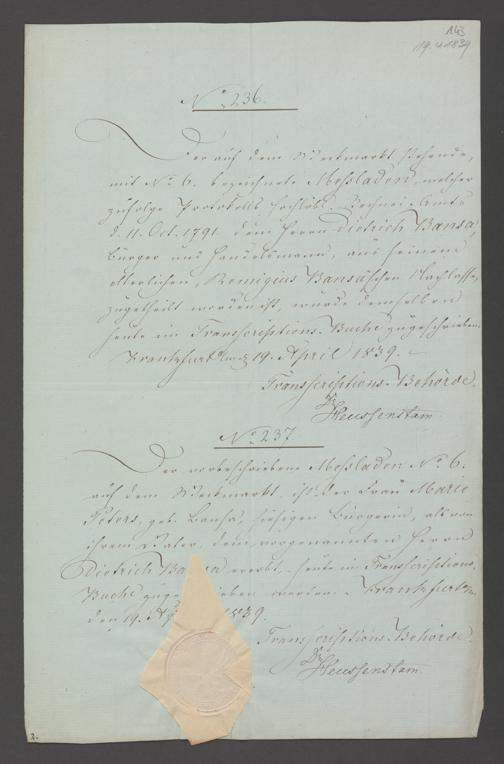 143
19.4.1839
No. 236.
Der auf dem Weckmarkt stehende,
mit No. 6. bezeichnete Messladen, welcher
zufolge Protokolls hochlöbl. Rechnei-Amts
d. 11. Oct. 1791 dem Herrn Dietrich Bansa
Bürger und Handelsmann, aus seinem
elterlichen, Remigius Bansa'schen Nachlasse,
zugetheilt worden ist, wurde demselben
heute im Transcriptions-Buche zugeschrieben.
Frankfurt 19. April 1839.
Transcriptions-Behörde.
Dr. Heussenstam
No. 237.
Der vorbeschriebene Messladen No. 6.
auf dem Weckmarkt, ist der Frau Marie
Peters, geb. Bansa, hiesigen Bürgerin, als von
ihrem Vater, dem vorgenannten Herrn
Dietrich Bansa ererbt, heute im Transcriptions-
Buche worden. Frankfurt
den 19. 1839.
Transcriptions-Behörde.
Dr. Heussenstam
3.